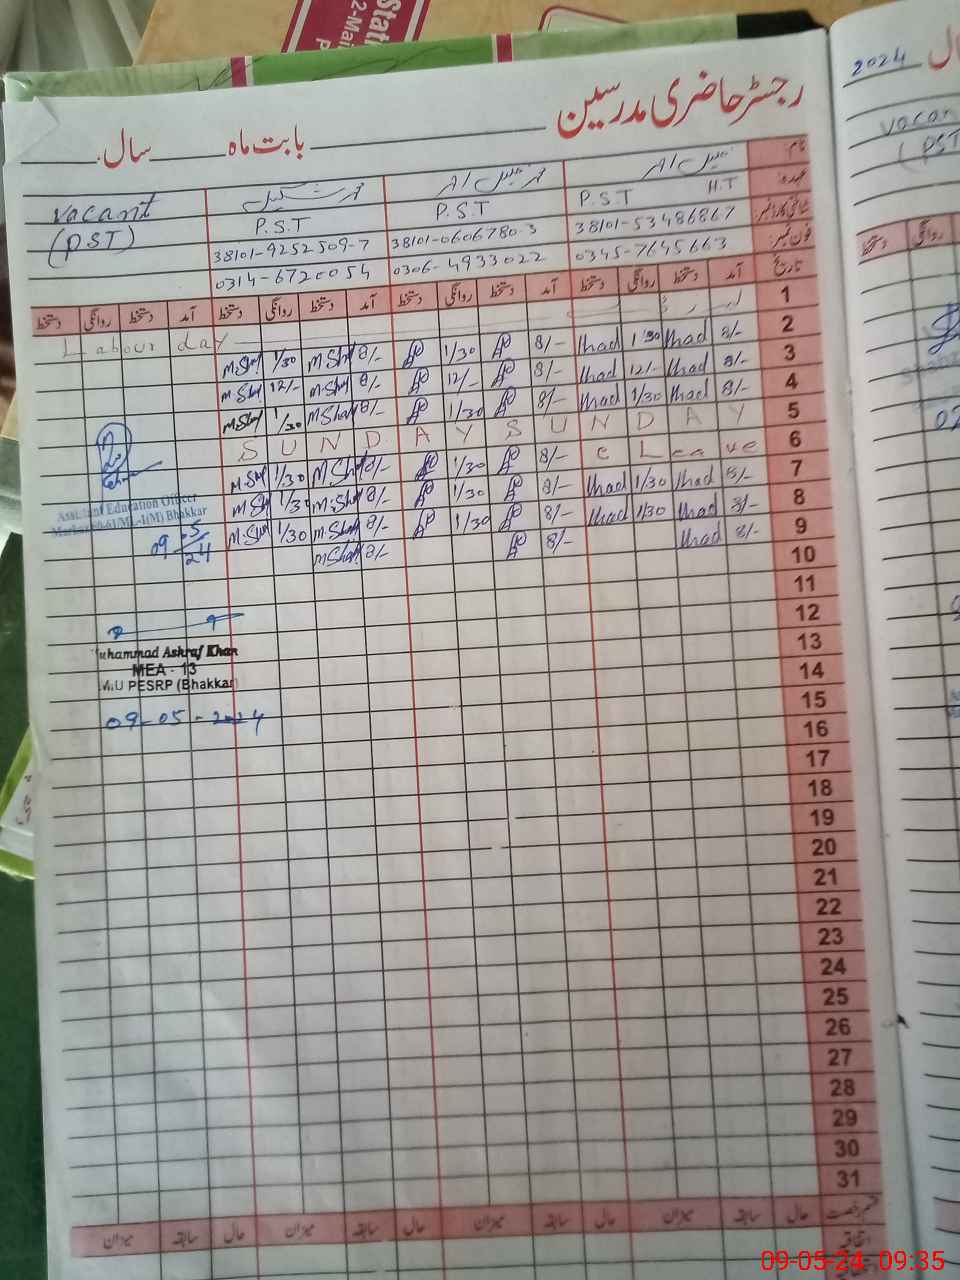 Stati
2-Mai
رجسٹر حاضری مدرسین
بابت ماہ سال
2024
نام
عہدہ
شناختی کارڈ نمبر
فون نمبر
تاریخ
vacant
(PST)
P.S.T
P.S.T
P.S.T H.T
38101-9252509-7
38101-0606780-3
38101-53486867
0314-6720054
0306-4933022
0345-7645663
آمد دستخط روانگی دستخط آمد دستخط روانگی دستخط آمد دستخط روانگی دستخط آمد دستخط روانگی دستخط
1 Labour day
2 8/- Khad 1/30 Khad 8/- 1/30 8/- M.Shaf 1/30 M.Shaf
3 8/- Khad 12/- Khad 8/- 12/- 8/- M.Shaf 12/- M.Shaf
4 8/- Khad 1/30 Khad 8/- 1/30 8/- M.Shaf 1/30 M.Shaf
5 SUNDAY SUNDAY
6 c Leave 8/- 1/30 8/- M.Shaf 1/30 M.Shaf
7 8/- Khad 1/30 Khad 8/- 1/30 8/- M.Shaf 1/30 M.Shaf
8 8/- Khad 1/30 Khad 8/- 1/30 8/- M.Shaf 1/30 M.Shaf
9 8/- Khad 8/- 8/- M.Shaf
10
11
12
13
14
15
16
17
18
19
20
21
22
23
24
25
26
27
28
29
30
31
Assistant Education Officer
Bhakkar
09-5-24
Muhammad Ashraf Khan
MEA - 13
PESRP (Bhakkar)
09-05-2024
قسم رخصت حال سابقہ میزان حال سابقہ میزان حال سابقہ میزان حال سابقہ میزان
اتفاقیہ
vacan
(PST
روانگی دستخط
09-05-24 09:35